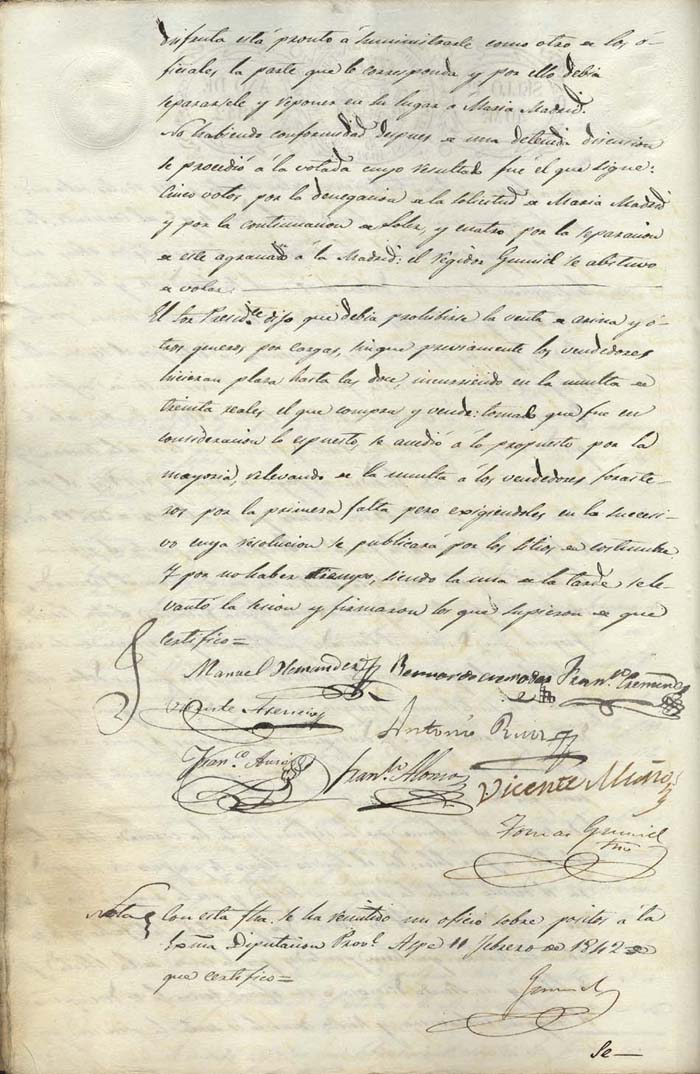 disfruta está pronto á suministrarle como otro de los ó-
ficiales la parte que le corresponda y por ello debia
separarsele y reponer en su lugar a Maria Madrid.
No habiendo conformidad despues de una detenida discusion
se procedió á la votada cuyo resultado fué el que sigue:
Cinco votos por la denegacion de la solicitud de Maria Madrid
y por la continuacion de Soler, y cuatro por la separacion
de este agraciando á la Madrid: el regidor se abstuvo
de votar.
El Sor Presidte dijo que debia prohibirse la venta de arina y ó-
tros generos por cargas, sin que previamente los vendedores
hicieran plaza hasta las doce, incurriendo en la multa de
treinta reales el que compra y vende: tomado que fue en
consideracion lo espuesto, se acedió á lo propuesto por la
mayoria, relevando de la multa á los vendedores foraste-
ros por la primera falta pero exigiendoles en la sucesi-
vo cuya resolucion se publicará por los sitios de costumbre
Y por no haber tiempo, siendo la una de la tarde se le-
vantó la sesion y firmaron los que supieron de que
certifico=
Manuel Bernardo Franco
Vicente Asencio
Antonio Ruiz
Franco Franco Alonso Vicente Muñoz
Tomas
Nota Con esta fha. se ha remitido un oficio sobre positos á la
Exma Diputacion Provl Aspe 11 Febrero de 1842 de
que certifico=
Se